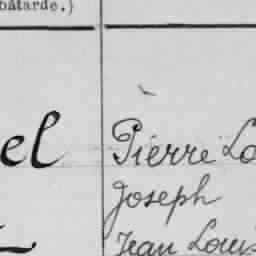 bâtarde.)
el Pierre Lo
Joseph
Jean Louis